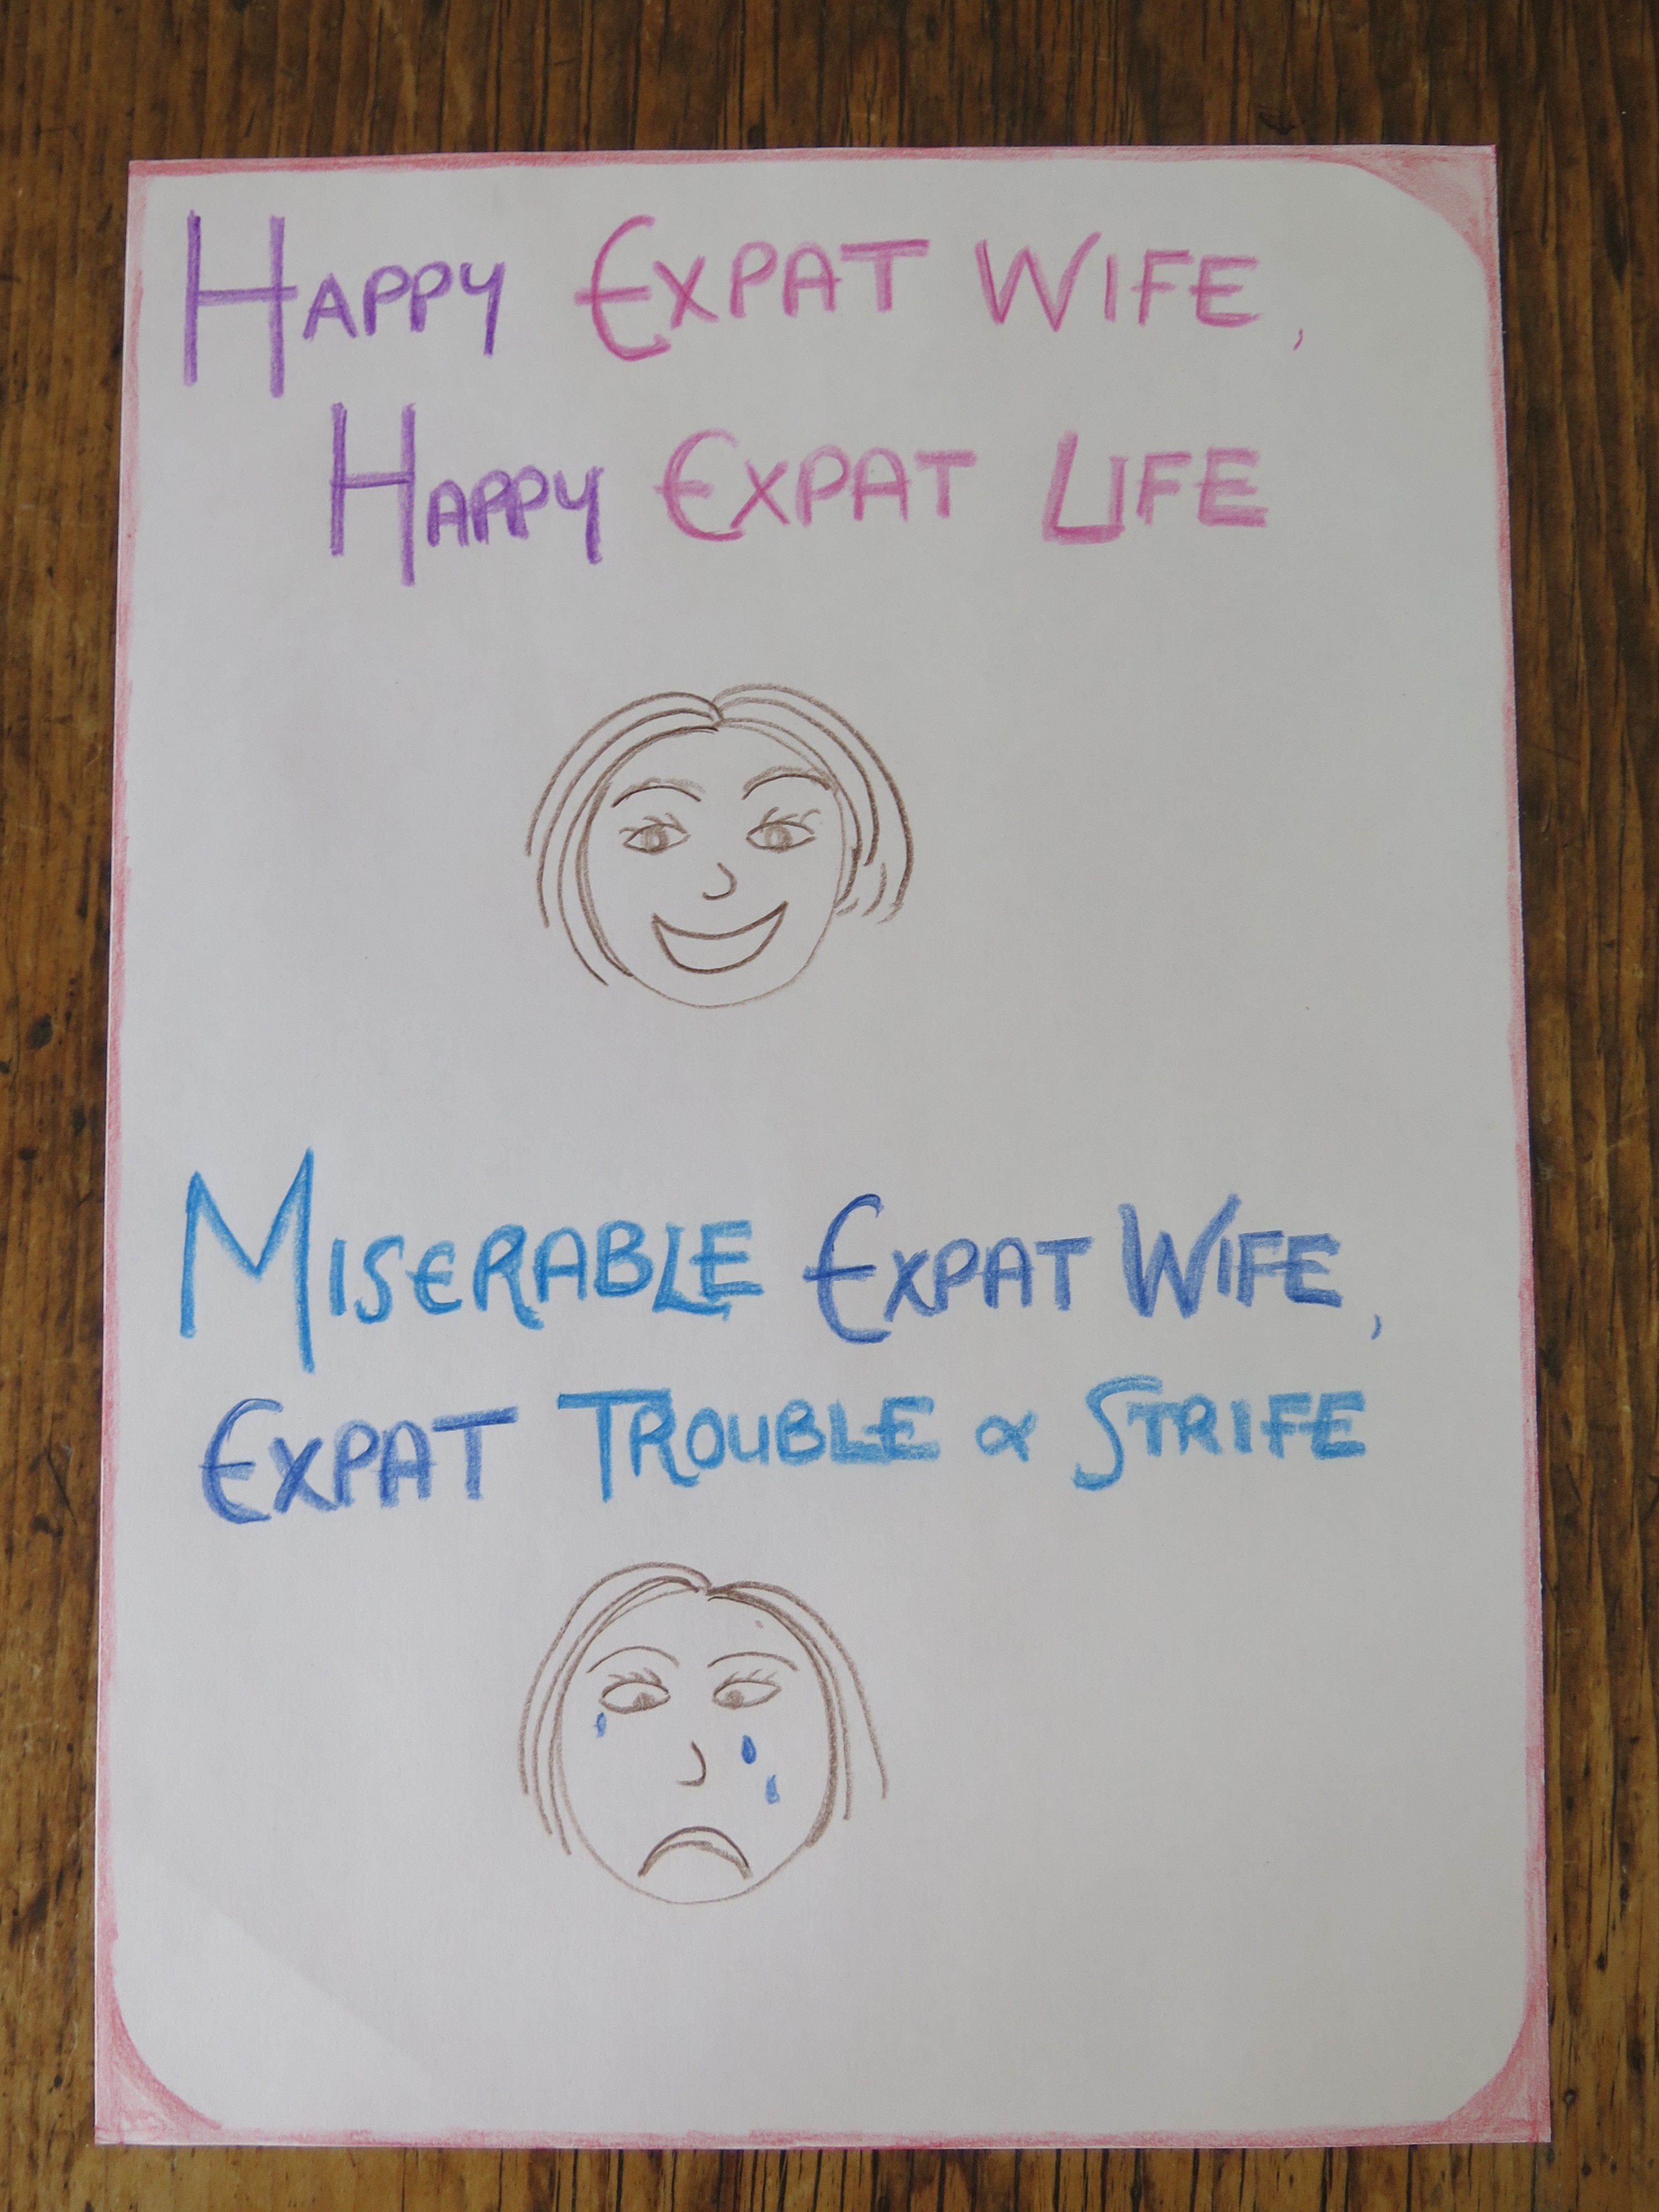 HAPPY EXPAT WIFE,
HAPPY EXPAT LIFE
MISERABLE EXPAT WIFE,
EXPAT TROUBLE & STRIFE